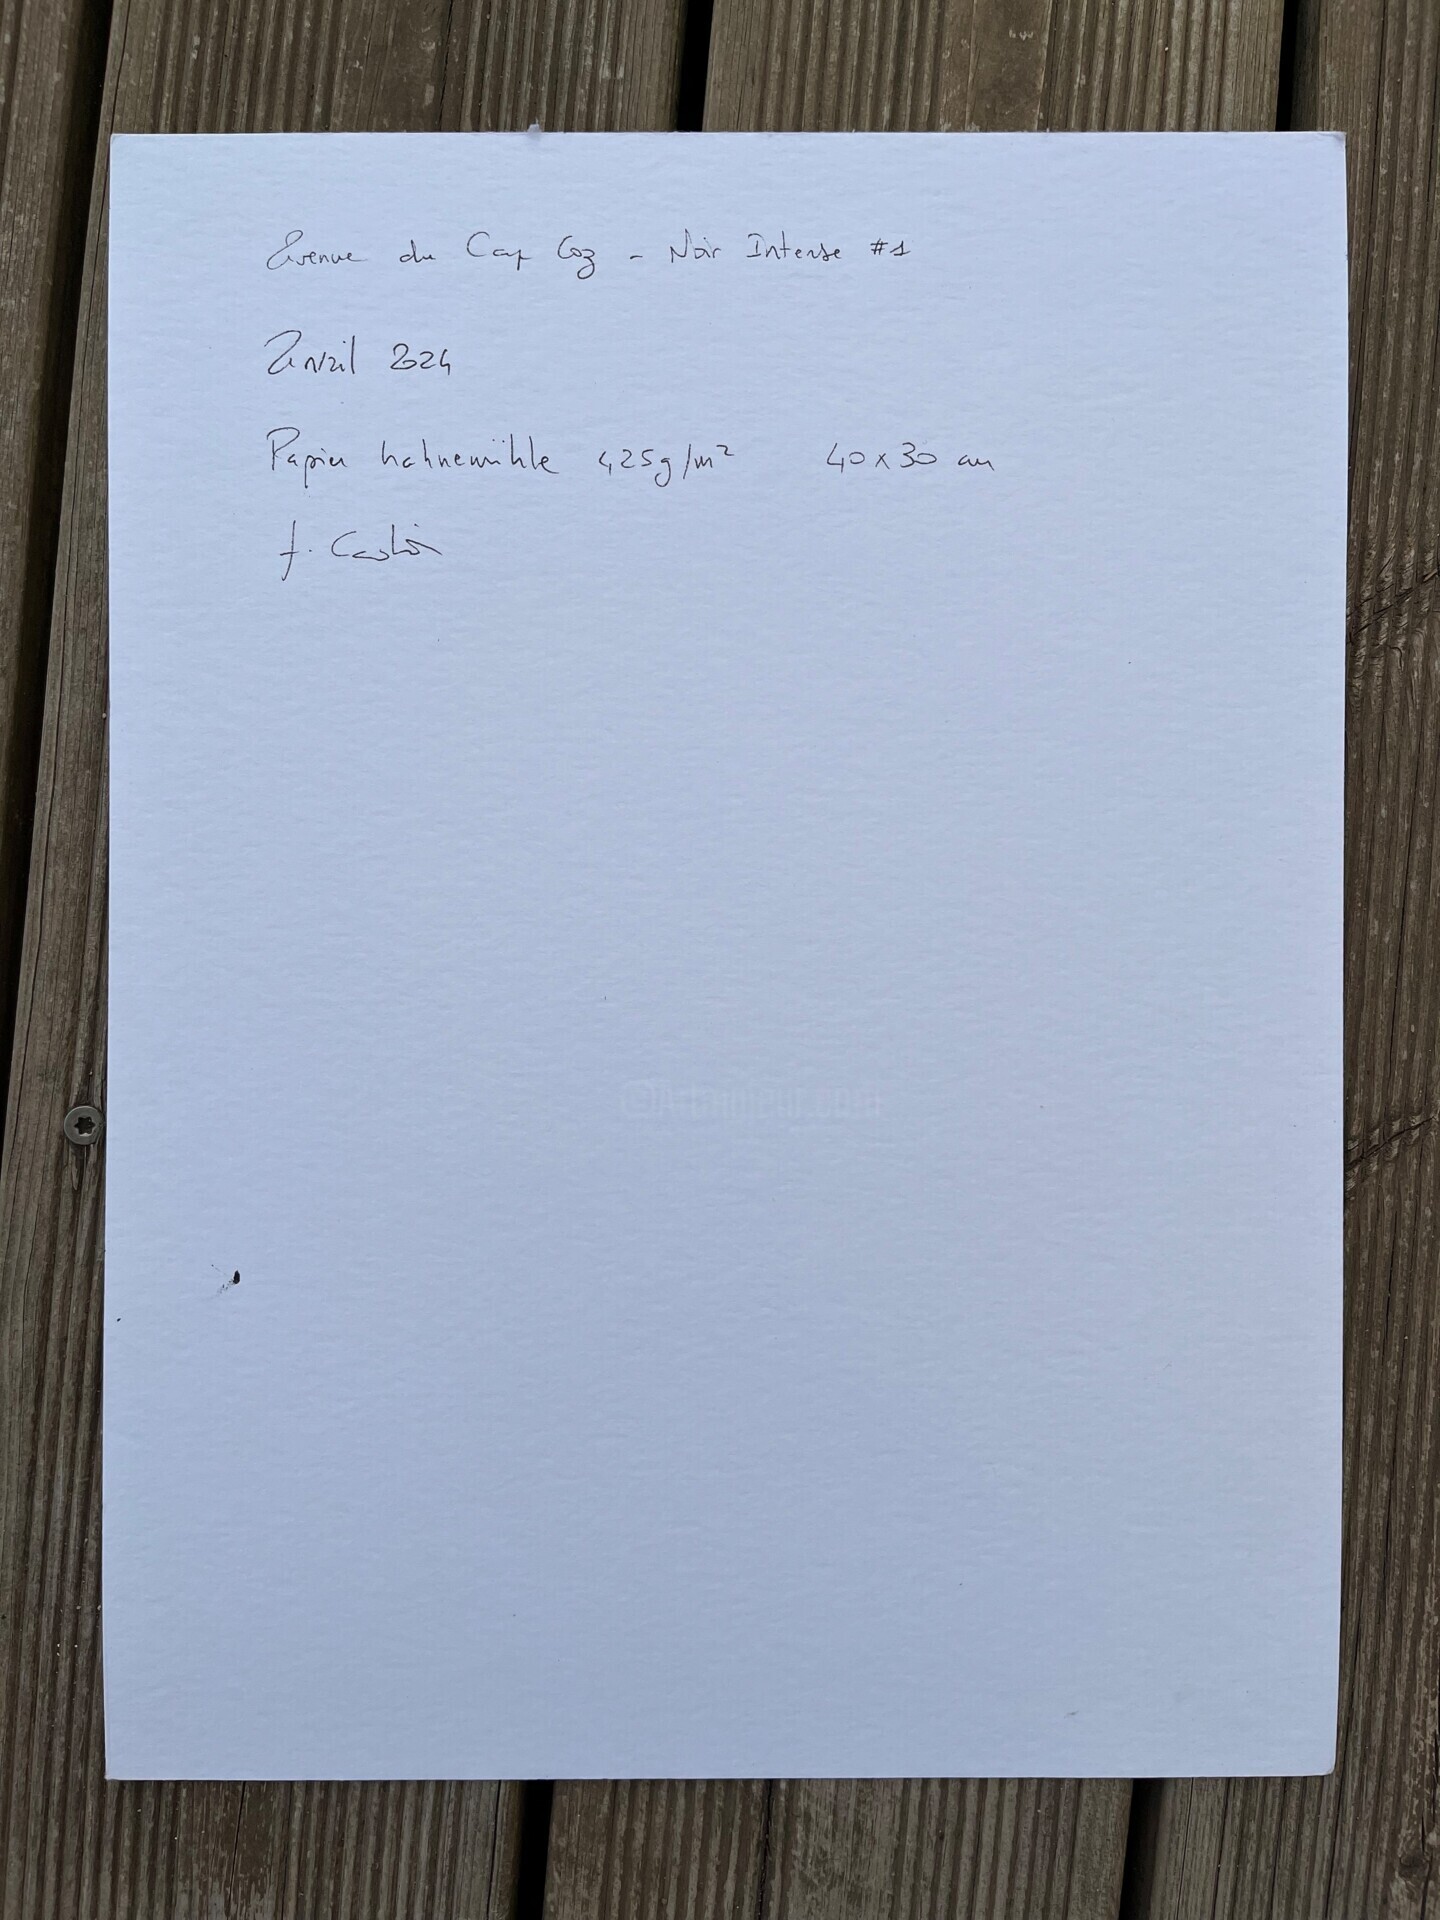 Avenue du Cap Coz - Noir Intense #1
Avril 2024
Papier hahnemühle 425g/m² 40x30 cm
f.
©Artmajeur.com